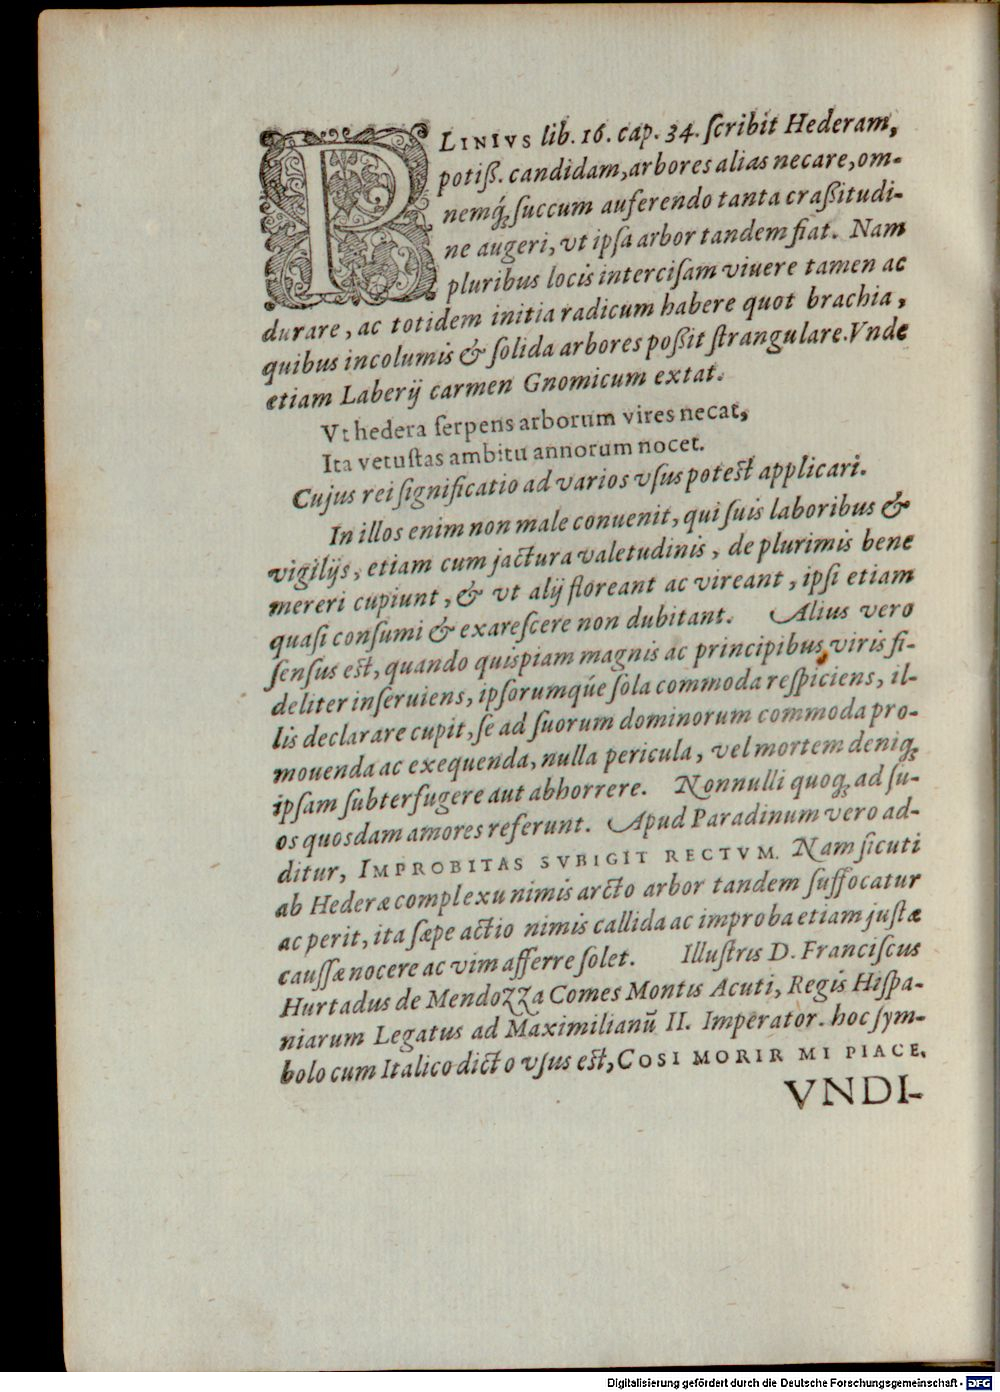 PLINIVS lib. 16. cap. 34. ſcribit Hederam,
potiß. candidam, arbores alias necare, om-
nemq́ꝫ ſuccum auferendo tanta craßitudi-
ne augeri, vt ipſa arbor tandem fiat. Nam
pluribus locis interciſam viuere tamen ac
durare, ac totidem initia radicum habere quot brachia,
quibus incolumis & ſolida arbores poßit ſtrangulare. Vnde
etiam Laberij carmen Gnomicum extat.
Vt hedera ſerpens arborum vires necat,
Ita vetuſtas ambitu annorum nocet.
Cujus rei ſignificatio ad varios vſus poteſt applicari.
In illos enim non male conuenit, qui ſuis laboribus &
vigilijs, etiam cum jactura valetudinis, de plurimis bene
mereri cupiunt, & vt alij floreant ac vireant, ipſi etiam
quaſi conſumi & exareſcere non dubitant. Alius vero
ſenſus eſt, quando quispiam magnis ac principibus viris fi-
deliter inſeruiens, ipſorumqúe ſola commoda reſpiciens, il-
lis declarare cupit, ſe ad ſuorum dominorum commoda pro-
mouenda ac exequenda, nulla pericula, vel mortem deniqꝫ
ipſam ſubterfugere aut abhorrere. Nonnulli quoqꝫ ad ſu-
os quosdam amores referunt. Apud Paradinum vero ad-
ditur, IMPROBITAS SVBIGIT RECTVM. Nam ſicuti
ab Hederæ complexu nimis arcto arbor tandem ſuffocatur
ac perit, ita ſæpe actio nimis callida ac improba etiam juſtæ
cauſſæ nocere ac vim afferre ſolet. Illuſtris D. Franciſcus
Hurtadus de Mendozza Comes Montis Acuti, Regis Hiſpa-
niarum Legatus ad Maximilianũ II. Imperator. hoc ſym-
bolo cum Italico dicto vſus eſt, COSI MORIR MI PIACE.
VNDI-
Digitalisierung gefördert durch die Deutsche Forschungsgemeinschaft - DFG